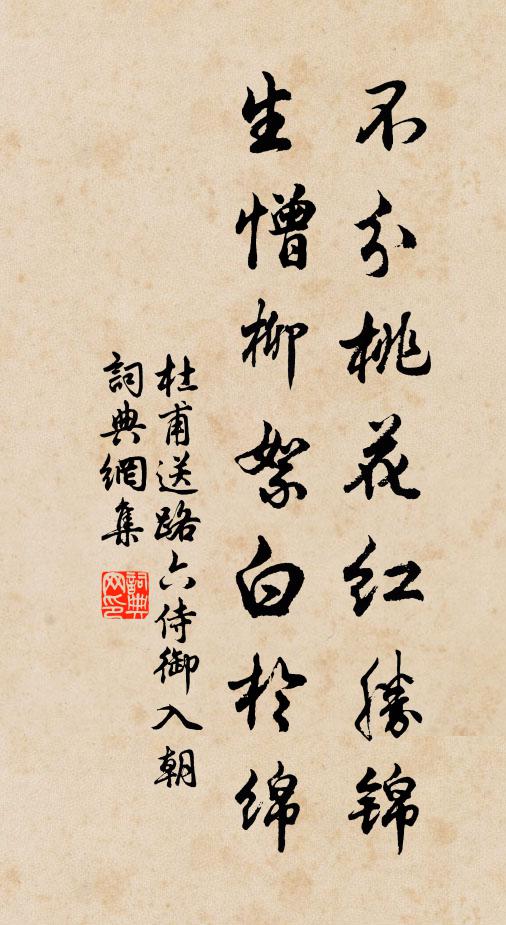 不分桃花红勝錦
生憎柳絮白於綿
杜甫送路六侍御入朝
詞典網集
詞典网印